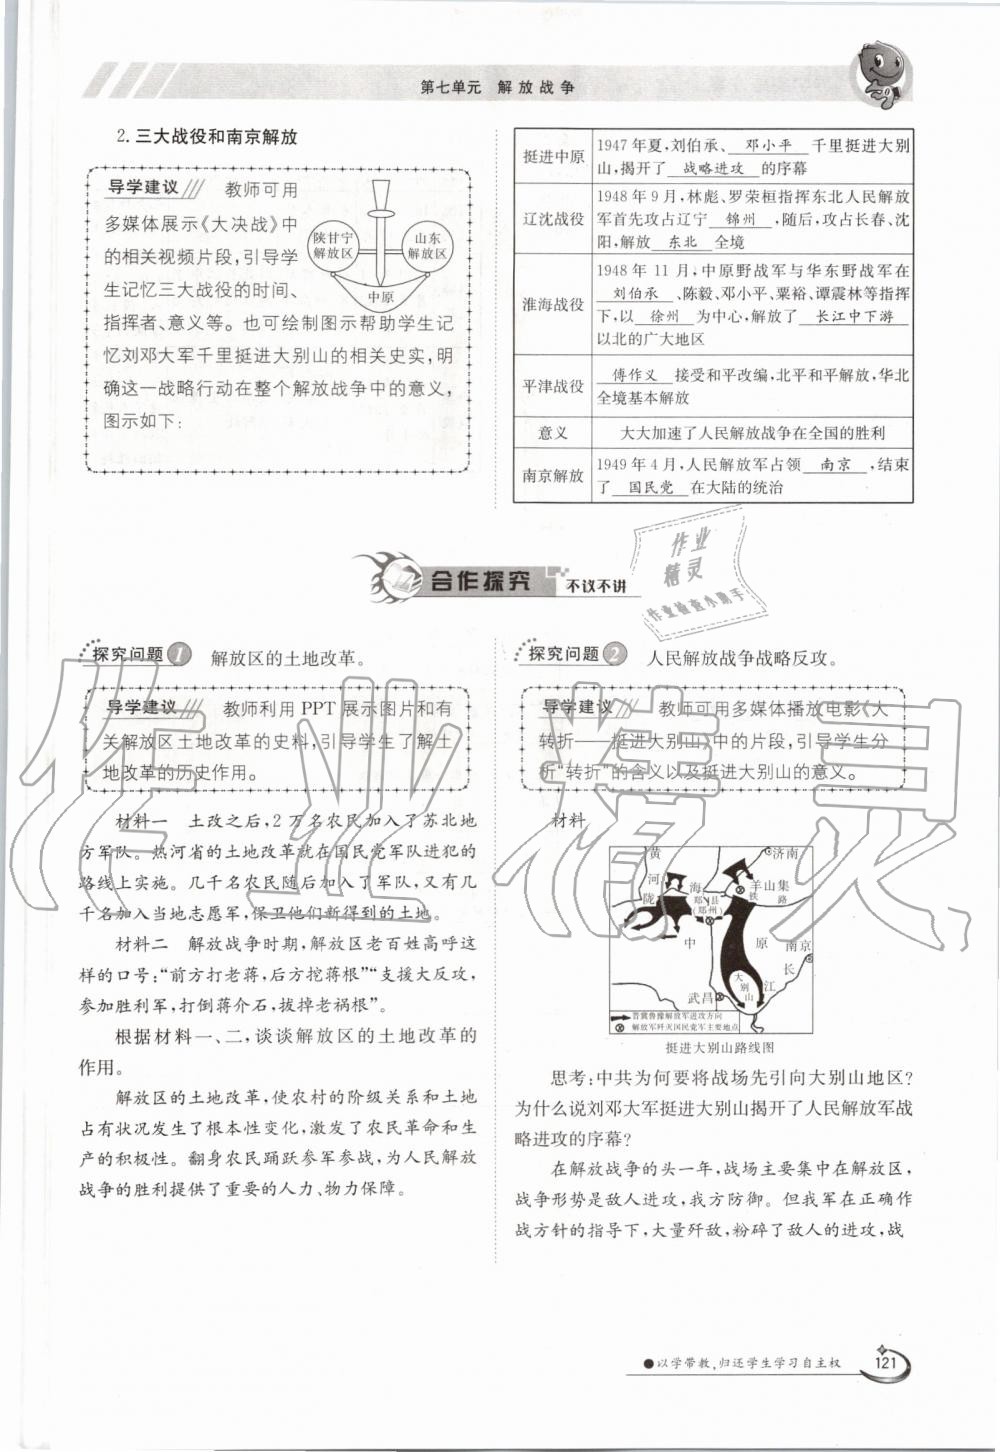 第七单元 解放战争
2. 三大战役和南京解放
导学建议 教师可用
多媒体展示《大决战》中
的相关视频片段,引导学
生记忆三大战役的时间、
指挥者、意义等。也可绘制图示帮助学生记
忆刘邓大军千里挺进大别山的相关史实,明
确这一战略行动在整个解放战争中的意义,
图示如下:
陕甘宁
解放区
山东
解放区
中原
挺进中原
1947 年夏,刘伯承、 邓小平 千里挺进大别
山,揭开了 战略进攻 的序幕
辽沈战役
1948 年 9 月,林彪、罗荣桓指挥东北人民解放
军首先攻占辽宁 锦州 ,随后,攻占长春、沈
阳,解放 东北 全境
淮海战役
1948 年 11 月,中原野战军与华东野战军在
刘伯承 、陈毅、邓小平、粟裕、谭震林等指挥
下,以 徐州 为中心,解放了 长江中下游
以北的广大地区
平津战役
傅作义 接受和平改编,北平和平解放,华北
全境基本解放
意义
大大加速了人民解放战争在全国的胜利
南京解放
1949 年 4 月,人民解放军占领 南京 ,结束
了 国民党 在大陆的统治
合作探究 不议不讲
作业
精灵
作业检查小助手
探究问题 1 解放区的土地改革。
导学建议 教师利用 PPT 展示图片和有
关解放区土地改革的史料,引导学生了解土
地改革的历史作用。
材料一 土改之后,2 万名农民加入了苏北地
方军队。热河省的土地改革就在国民党军队进犯的
路线上实施。几千名农民随后加入了军队,又有几
千名加入当地志愿军,保卫他们新得到的土地。
材料二 解放战争时期,解放区老百姓高呼这
样的口号:“前方打老蒋,后方挖蒋根”“支援大反攻,
参加胜利军,打倒蒋介石,拔掉老祸根”。
根据材料一、二,谈谈解放区的土地改革的
作用。
解放区的土地改革,使农村的阶级关系和土地
占有状况发生了根本性变化,激发了农民革命和生
产的积极性。翻身农民踊跃参军参战,为人民解放
战争的胜利提供了重要的人力、物力保障。
探究问题 2 人民解放战争战略反攻。
导学建议 教师可用多媒体播放电影《大
转折——挺进大别山》中的片段,引导学生分
析“转折”的含义以及挺进大别山的意义。
材料
黄
河
济南
羊山集
陇
海
铁
路
郑县
(郑州)
中
原
南京
长
江
大
别
山
武昌
晋冀鲁豫解放军进攻方向
解放军歼灭国民党军主要地点
挺进大别山路线图
思考:中共为何要将战场先引向大别山地区?
为什么说刘邓大军挺进大别山揭开了人民解放军战
略进攻的序幕?
在解放战争的头一年,战场主要集中在解放区,
战争形势是敌人进攻,我方防御。但我军在正确作
战方针的指导下,大量歼敌,粉碎了敌人的进攻,战
作业精灵
●以学带教,归还学生学习自主权
121